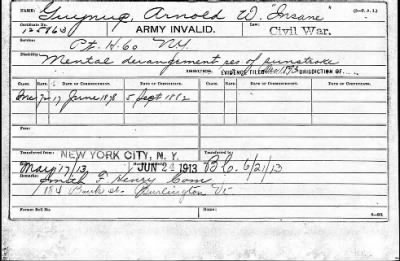 NAME: Arnold W. "Insane" (3-7 A.1.)
Certificate No. ARMY INVALID. Law:
125863 Civil War.
Service: Pt. H 60 N.Y.
Disability: Mental derangement res of sunstroke
EVIDENCE FILED JURISDICTION OF
CLASS. RATE. DATE OF COMMENCEMENT. DATE OF CERTIFICATE. CLASS. RATE. DATE OF COMMENCEMENT. DATE OF CERTIFICATE.
17 June 1878 5 Sept 1882
From:
Transferred from: NEW YORK CITY, N.Y. Transferred to:
May 17/13 JUN 24 1913 6/21/13
Remarks: Smith F Henry Com
184 Bank st. Burlington Vt
Former Roll No. Home: